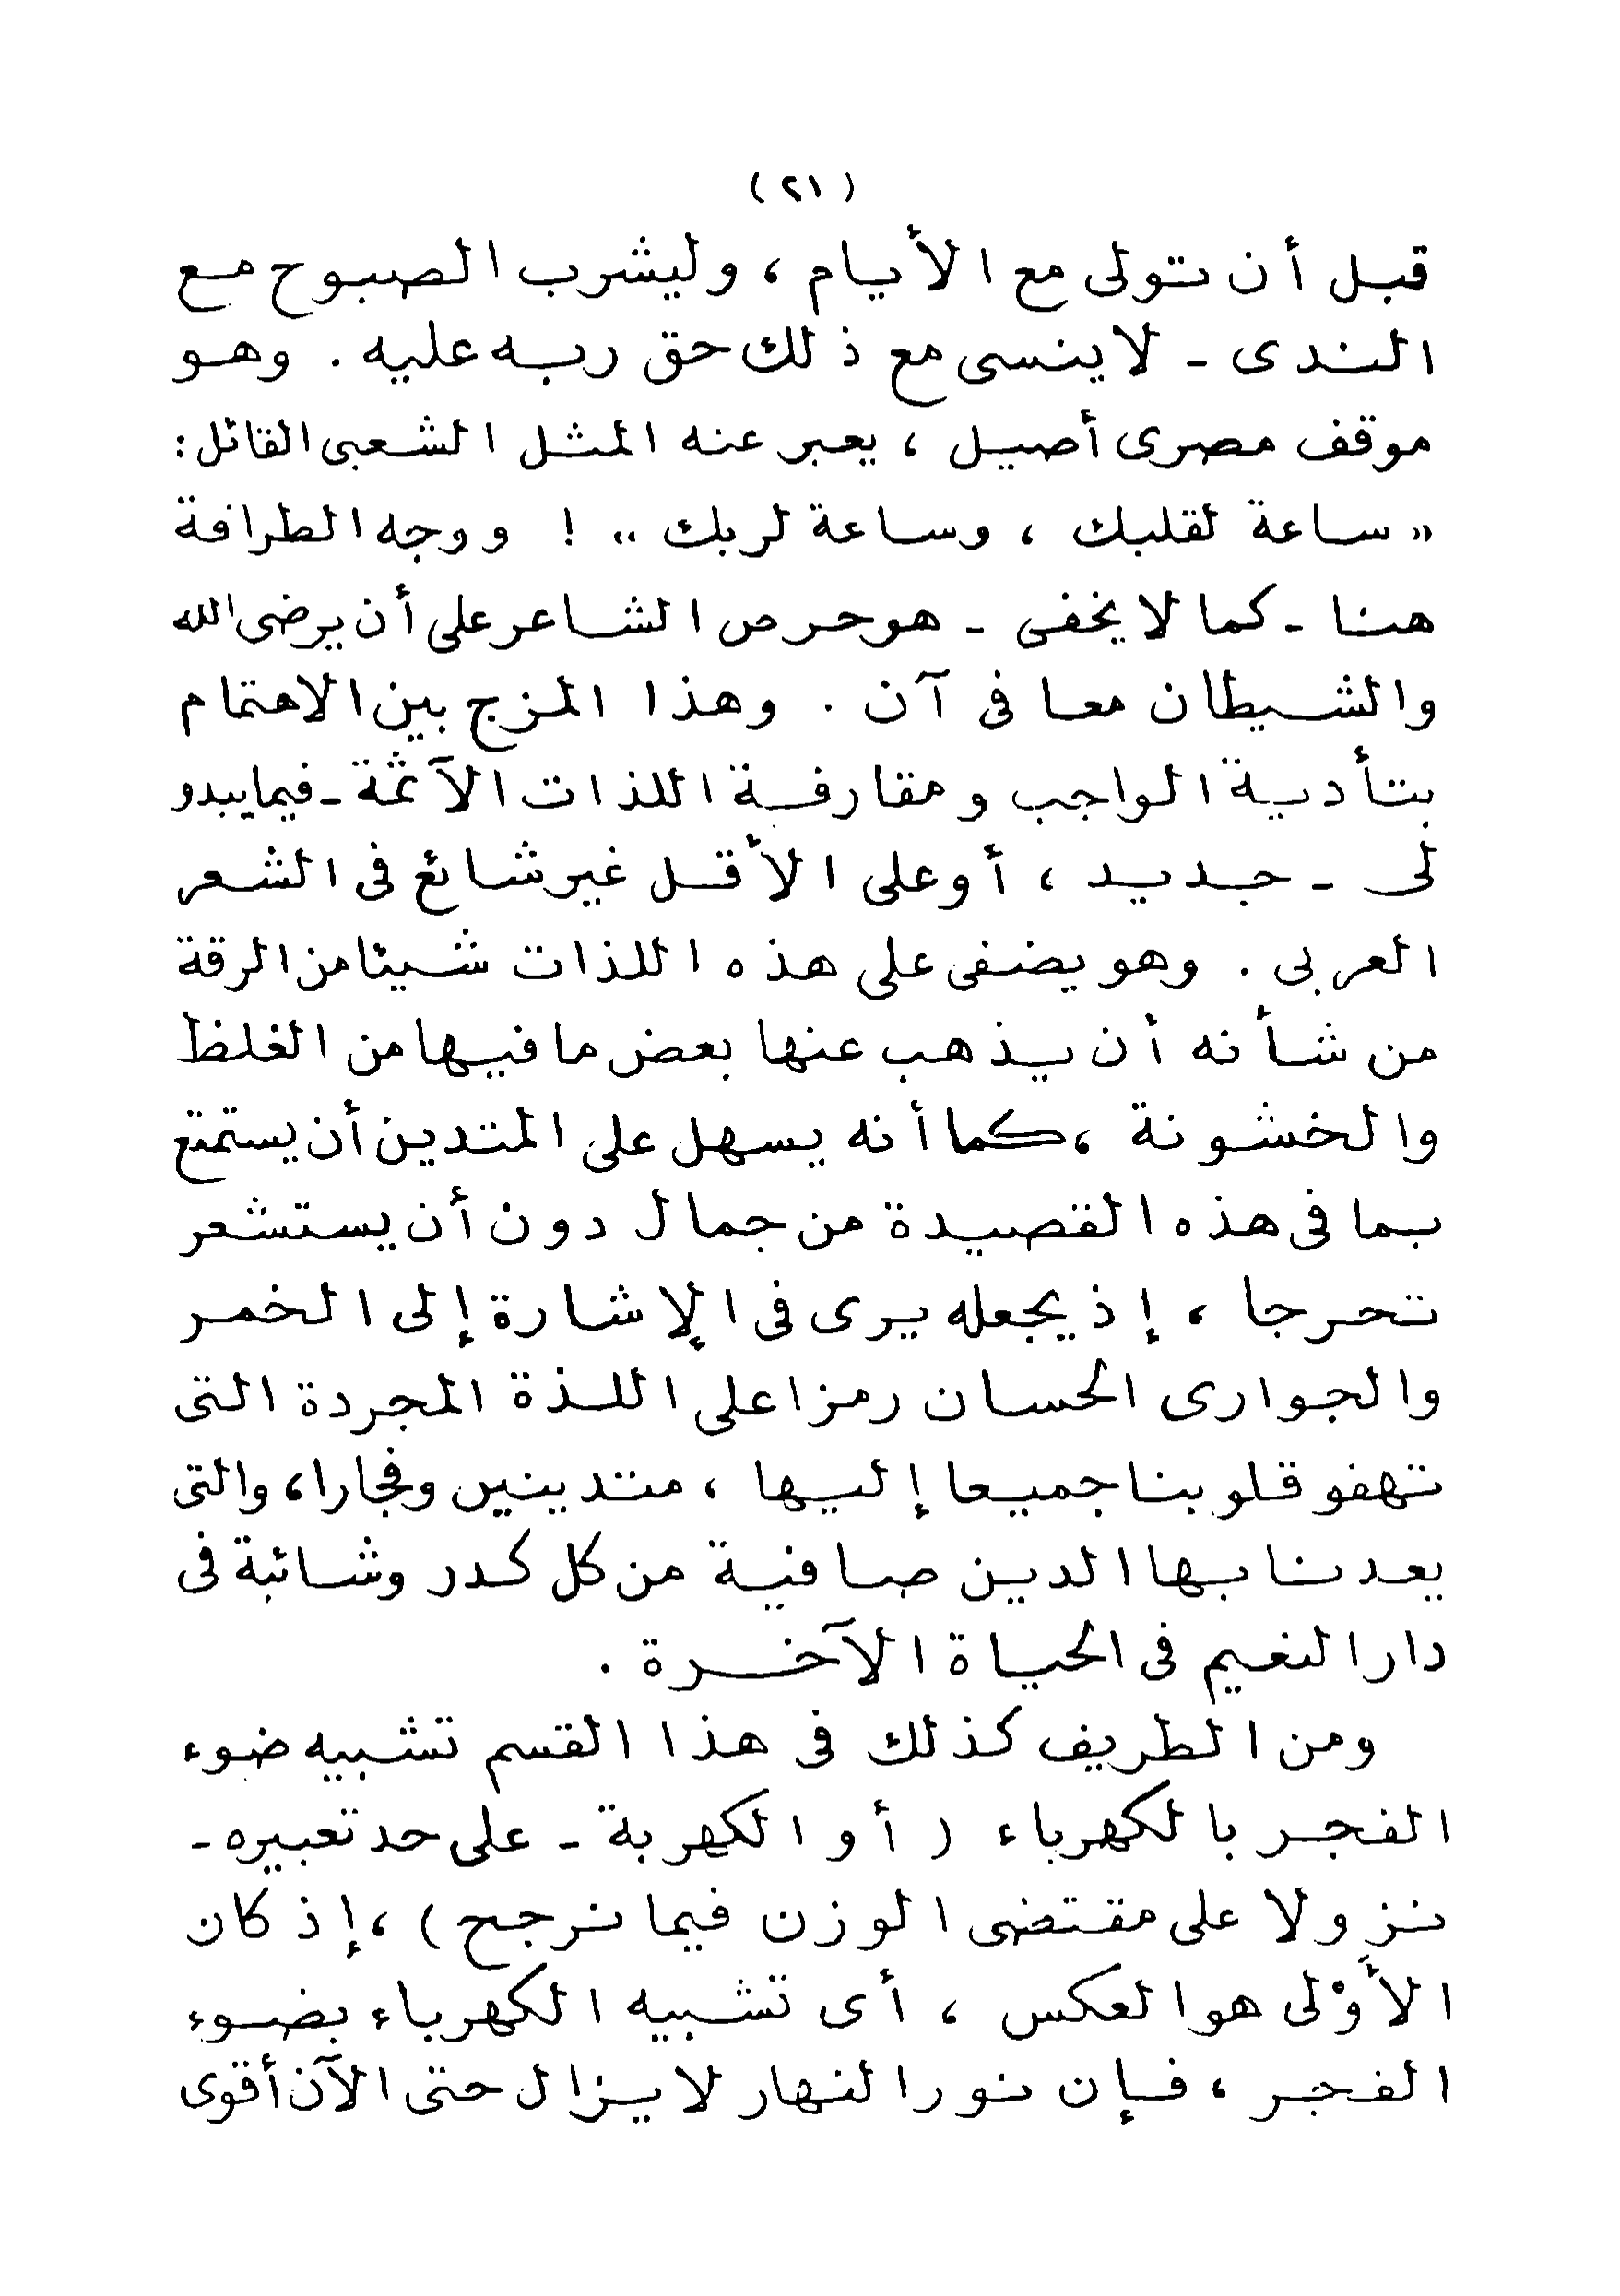 ( ٢١ )
قبل أن تولى مع الأيام ، وليشرب الصبوح مع
الندى - لا ينسى مع ذلك حق ربه عليه . وهو
موقف مصرى أصيل ، يعبر عنه المثل الشعبى القائل :
" ساعة لقلبك ، وساعة لربك " ! ووجه الطرافة
هنا - كما لا يخفى - هو حرص الشاعر على أن يرضى الله
والشيطان معا فى آن . وهذا المزج بين الاهتمام
بتأدية الواجب ومقارفة اللذات الآثمة - فيما يبدو
لى - جديد ، أو على الأقل غير شائع فى الشعر
العربى . وهو يضفى على هذه اللذات شيئا من الرقة
من شأنه أن يذهب عنها بعض ما فيها من الغلظ
والخشونة ، كما أنه يسهل على المتدين أن يستمتع
بما فى هذه القصيدة من جمال دون أن يستشعر
تحرجا ، إذ يجعله يرى فى الإشارة إلى الخمر
والجوارى الحسان رمزا على اللذة المجردة التى
تهفو قلوبنا جميعا إليها ، متدينين وفجارا ، والتى
يعدنا بها الدين صافية من كل كدر وشائبة فى
دار النعيم فى الحياة الآخرة .
ومن الطريف كذلك فى هذا القسم تشبيه ضوء
الفجر بالكهرباء ( أو الكهربة - على حد تعبيره -
نزولا على مقتضى الوزن فيما نرجح ) ، إذ كان
الأَوْلى هو العكس ، أى تشبيه الكهرباء بضوء
الفجر ، فإن نور النهار لا يزال حتى الآن أقوى